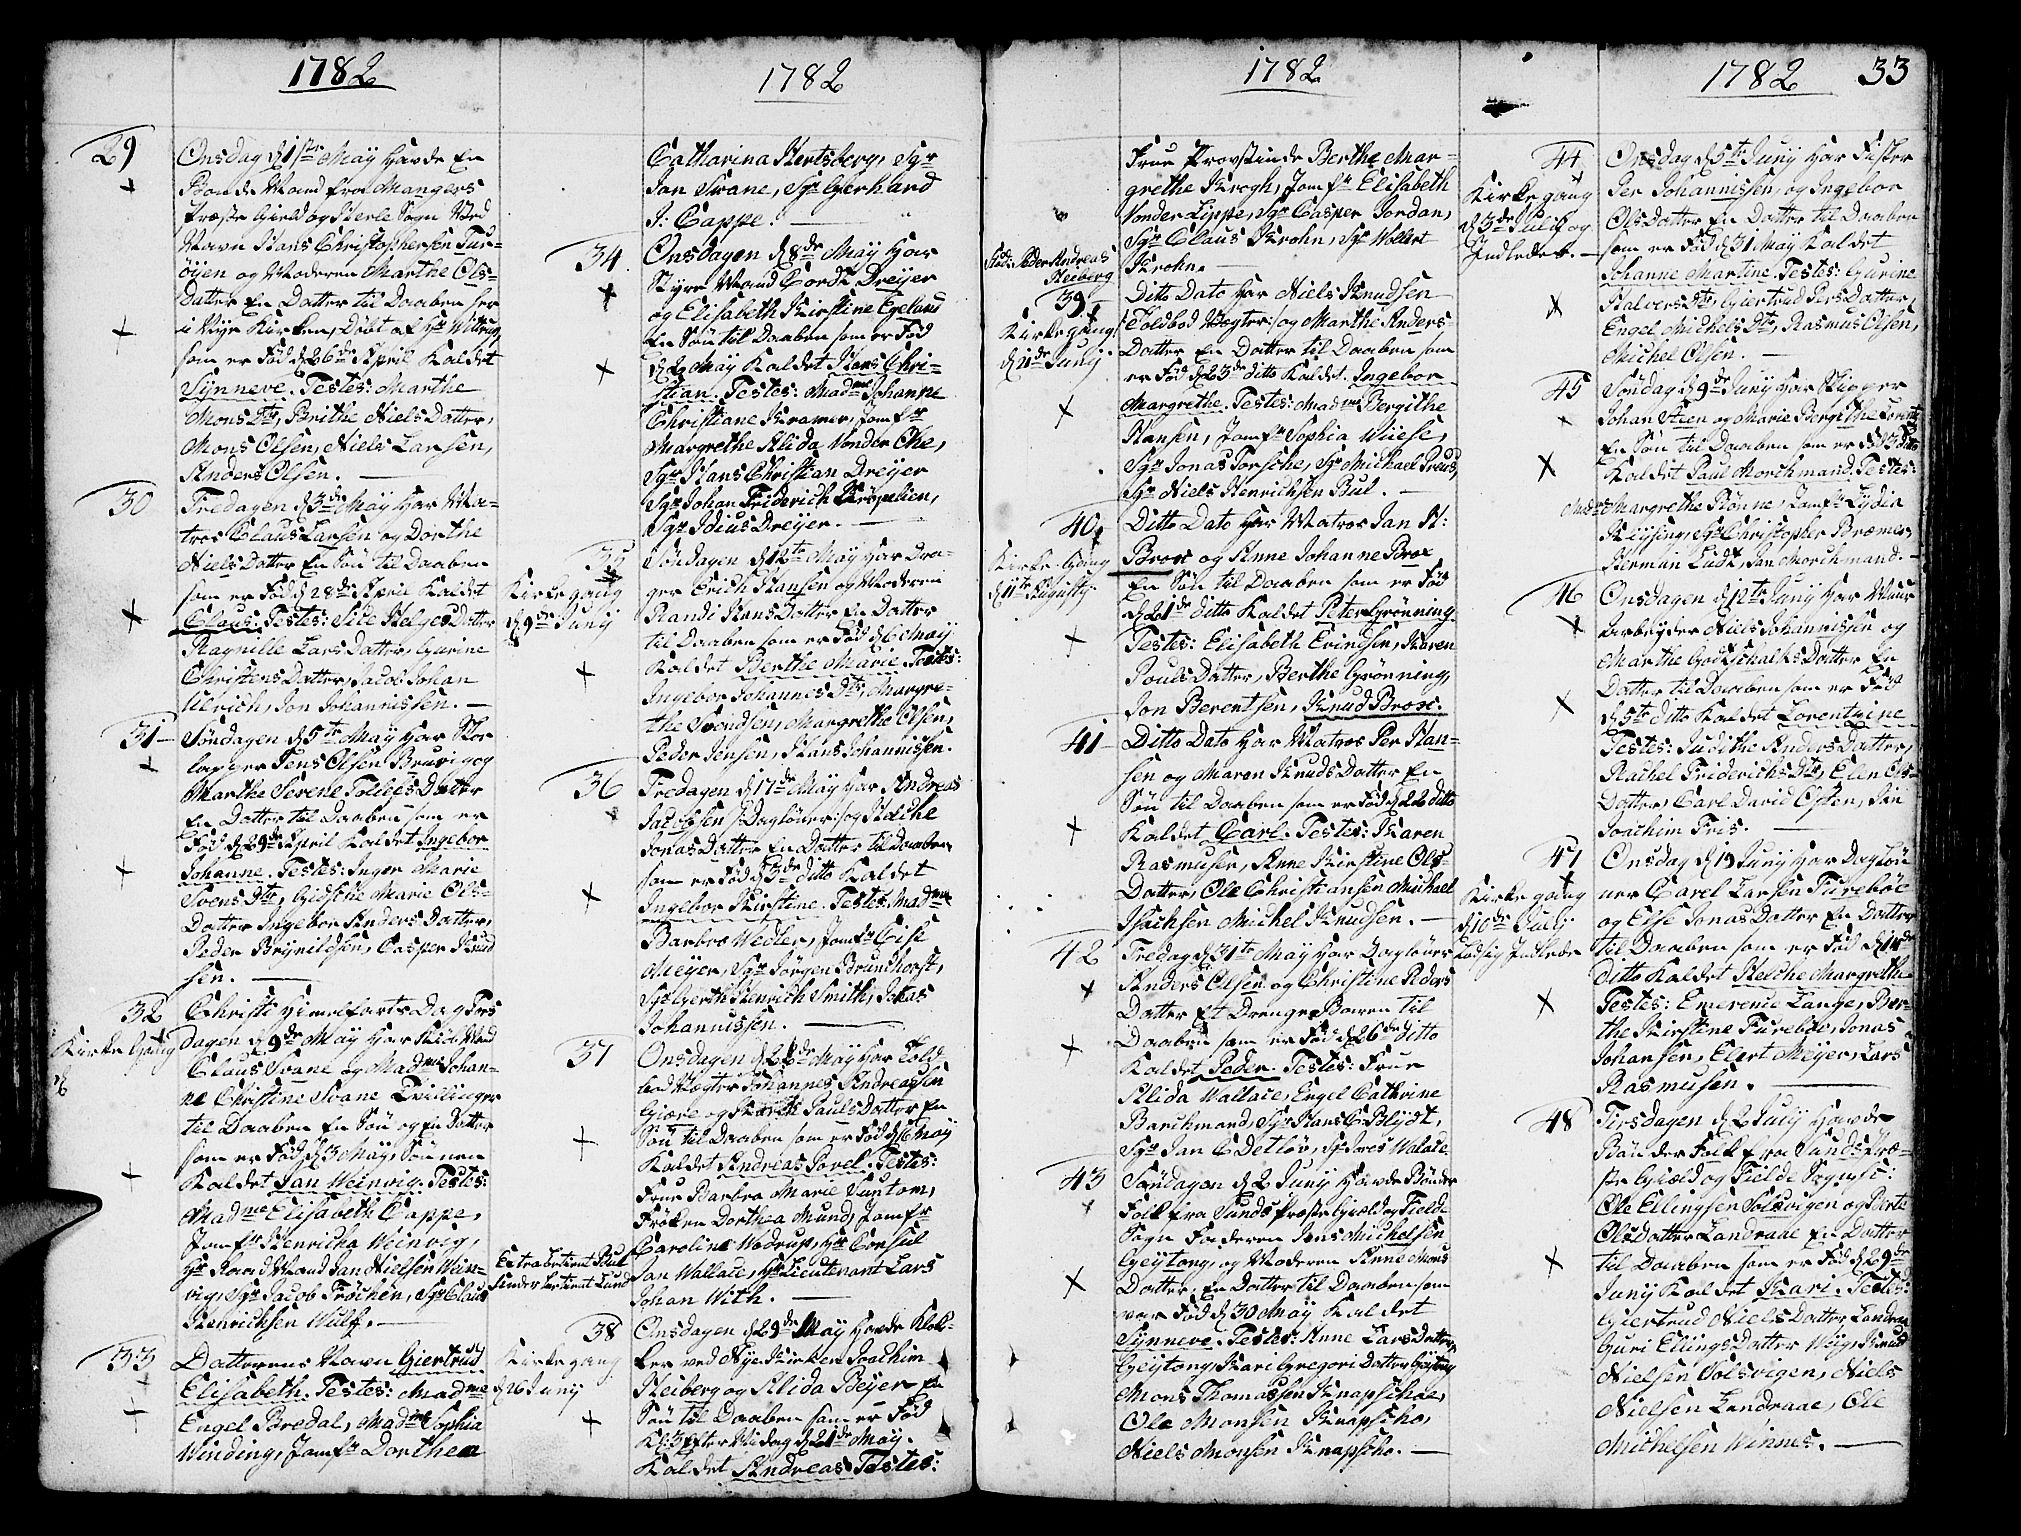 1782
29
Onsdag d 1ste May havde En
Bonde Mand fra Mangers
Præste Gield og Herle Sogn Ved
Navn Hans Christophersen Tur-
öyen og Moderen Marthe Ols-
Datter En Datter til Daaben her
i Nye Kirken, Döbt af Hr Wittrup,
som er Föd d 26de April Kaldet
Synneve. Testes: Marthe
Mons Dtr, Brithe Niels Datter,
Mons Olsen, Niels Larsen,
Anders Olsen. —
30
Fredagen d 3de May har Ma-
tros Claus Larsen og Dorthe
Niels Datter En Sön til Daaben
som er Föd d 28de April Kaldet
Claus. Testes: Sille Helges Datter
Ragnille Lars Datter, Gurine
Christens Datter, Jacob Johan
Ulrich, Jon Johannissen. —
31
Söndagen d 5te May har
Jens Olsen Bruvig og
Marthe Serene Tollefs Datter
En Datter til Daaben som er
Föd d 29de April Kaldet Ingebor
Johanne. Testes: Inger Marie
Svens Dtr, Gidsche Marie Ols-
Datter Ingebor Anders Datter,
Peder Brynildsen, Casper Knud
sen. —
32
Kirke Gang
Christi Himelfarts Dag Tors
dagen d 9de May har Kiöb Mand
Claus Svane og Madme Johan-
ne Christine Svane Tvillinger
til Daaben En Sön og En Datter
som er Föd d 3 May, Sönnen
Kaldet Jan Weinvig. Testes:
Madme Elisabeth Cappe,
Jomfr Henricka Weinvig,
Hr Raad Mand Jan Nielsen Wein-
vig, Sgr Jacob Fröchen, Sgr Claus
Henrichsen Wulff. —
33
Datterens Navn Giertrud
Elisabeth. Testes: Madme
Engel Bredal, Madme Sophia
Winding, Jomfr Dorthea
1782
Catharina Hertsberg, Sgr
Jan Svane, Sgr Gerhard
J: Cappe. —
34
Onsdagen d 8de May har
Styr Mand Cordt Dreyer
og Elisabeth Kirstine
En Sön til Daaben som er Föd
d 2 May Kaldet Hans Chri-
stian. Testes: Madme Johanne
Christiane Kramer, Jomfr
Margrethe Alida Vonder Ohe,
Sgr Hans Christian Dreyer
Sgr Johan Friderich
Sgr Idius Dreyer. —
35
Kirke gang
d 9de Juny
Söndagen d 12te May har Dra-
ger Erich Hansen og Moderen
Randi Hans Datter En Datter
til Daaben som er Föd d 6 May
Kaldet Berthe Marie Testes:
Ingebor Johannes Dtr, Margre-
the Svendsen, Margrethe Olsen,
Peder Jensen, Hans Johannissen.
36
Fredagen d 17de May har Andreas
Jacobsen /:Daglöner:/ og Helche
Jonas Datter En Datter til Daaben
som er Föd d 3de ditto Kaldet
Ingebor Kirstine. Testes, Madme
Barbro Wedler, Jomfr Cise
Meyer, Sgr Jörgen Brunchorst,
Sgr Gerth Henrich Smith, Jonas
Johannissen. —
37
Onsdagen d 22de May har Told
bod Vogter Johannes Andreasen
Giære og Pauls Datter En
Sön til Daaben som er Föd d 16 May
Kaldet Andreas Povel. Testes:
Frue Barbra Marie Suntom,
Fröken Dorthea Mund, Jomfr
Caroline Wodrup, Hr Consul
Jan Wallace, Hr Lieutenant Lars
Johan With. —
38
Kirke gang
d 26 Juny
Onsdagen d 29de May havde Klok-
ker ved Nye Kirken Joachim
Heiberg og Alida Beyer En
Sön til Daaben som er Föd
Kl: 3 Efter Midag d 21de May.
Kaldet Andreas Testes:
1782
Frue Provstinde Berthe Mar-
grethe Krogh, Jomfr Elisabeth
Vonder Lippe, Sgr Casper Jordan,
Sgr Claus Krohn, Sgr Wollert
Krohn.
Peder Andreas
Heiberg
39
Kirke gang
d 21de Juny
Ditto Dato har Niels Knudsen
/:Toldbod Vogter:/ og Marthe Anders-
Datter En Datter til Daaben som
er Föd d 23de ditto Kaldet Ingebor
Margrethe. Testes: Madme Bergithe
Hansen, Jomfr Sophia Wiese,
Sgr Jonas Forsche, Sgr Michael Preus,
Sgr Niels Henrichsen Bul. —
40
Kirke Gang
d 11te Augusty
Ditto Dato har Matros Jan H:
Brose og Anne Johanne Brose
En Sön til Daaben som er Föd
d 21de ditto Kaldet Peter Grönning
Testes: Elisabeth Evindsen, Karen
Pouls Datter, Berthe Grönning,
Jon Berentsen, Knud Brose.
41
Ditto Dato har Matros Per Han-
sen og Maren Knuds Datter En
Sön til Daaben som er Föd d 22 ditto
Kaldet Carl. Testes: Karen
Rasmusen, Anne Kirstine Ols-
Datter, Ole Christiansen Michael
Isachsen Michel Knudsen. —
42
Fredag d 31te May har Daglöner
Anders Olsen og Christine Peders
Datter Et Drenge Baren til
Daaben som er Föd d 26de ditto
Kaldet Peder. Testes: Frue
Alida Wallace, Engel Cathrine
Barchmand, Sgr Hans C Blydt,
Sgr Jan C Detlöv, Sr Jores Walace.
43
Söndagen d 2 Juny havde Bönder
Folk fra Sunds Præste Gield og Fielde
Sogn Faderen Jens Michelsen
Geytong, og Moderen Anne Mons
Datter, En Datter til Daaben som
var Föd d 30 May Kaldet
Synneve. Testes: Anne Lars Datter
Geytong, Kari Gregori Datter Geytong
Mons Thomassen Knapschoe,
Ole Monsen Knapscho,
Niels Monsen Knapscho. —
1782 33
44
Kirke gang
d 3de July og
Indledet. —
Onsdag d 5te Juny har Fisker
Per Johannissen, og Ingebor
Ols Datter En Datter til Daaben
som er Föd d 31 May Kaldet
Johanne Martine. Testes: Gurine
Halvors Dtr, Giertrud Pers Datter,
Engel Michels Dtr, Rasmus Olsen,
Michel Olsen. —
45
Söndag d 9de Juny har Skipper
Johan Steen og Marie Bergithe
En Sön til Daaben som er Föd 3 ditto
Kaldet Paul Morchmand. Testes:
Madme Margrethe Rönne, Jomfr Lydia
Kiysing, Sgr Christopher Bræmer,
Herman Lüdt, Jan Morchmand. —
46
Onsdagen d 12te Juny har Muur
Arbeyder Niels Johannissen og
Marthe Godtschalks Datter En
Datter til Daaben som er Föd
d 5te ditto Kaldet Lorentzine
Testes: Judithe Anders Datter,
Rachel Friderichs Dtr, Elen Ols-
Datter, Carl David Olsen, Jan
Joachim Fris. —
47
Kirke gang
d 10de July
Onsdag d 19 Juny har Daglön
ner Carel Larsen Fureböe
og Else Jonas Datter En Datter
til Daaben som er Föd d 14de
Ditto Kaldet Helche Margrethe
Testes: Emerence Lange, Ber-
the Kirstine Fureböe, Jonas
Johansen, Elert Meyer, Lars
Rasmusen. —
48
Tirsdagen d 2 July havde
Bönder Folk fra Sunds Præ-
ste Gield og Fielde Sogn
Ole Ellingsen Solsvigen og Brite
Ols Datter Landraae En Datter
til Daaben som er Föd d 29de
Juny Kaldet Kari. Testes:
Giertrud Niels Datter Landraa
Guri Ellings Datter Weg, Knud
Nielsen Solsvigen, Niels
Nielsen Landraae, Ole
Michelsen Winnes. —